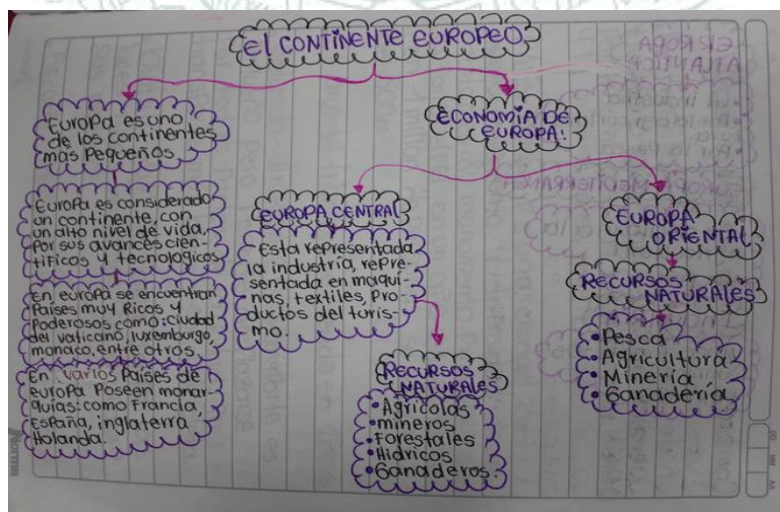 El CONTINENTE EUROPEO
Europa es uno
de los continentes
mas Pequeños
Europa es considerado
un continente, con
un alto nivel de vida,
Por sus avances cien-
tificos y tecnologicos
En europa se encuentran
Paises muy Ricos y
Poderosos como: Ciudad
del vaticano, luxemburgo,
monaco, entre otros.
En varios Paises de
europa Poseen monar-
quias: como Francia,
España, inglaterra
Holanda.
ECONOMÍA DE
EUROPA:
EUROPA CENTRAL
Esta representada
la industria, repre-
sentada en maqui-
nas, textiles, Pro-
ductos del turis-
mo.
RECURSOS
NATURALES
•Agricolas
•mineros
•Forestales
•Hidricos
•Ganaderos.
EUROPA
ORIENTAL
RECURSOS
NATURALES
•Pesca
•Agricultura
•Minería
•Ganadería
Norma